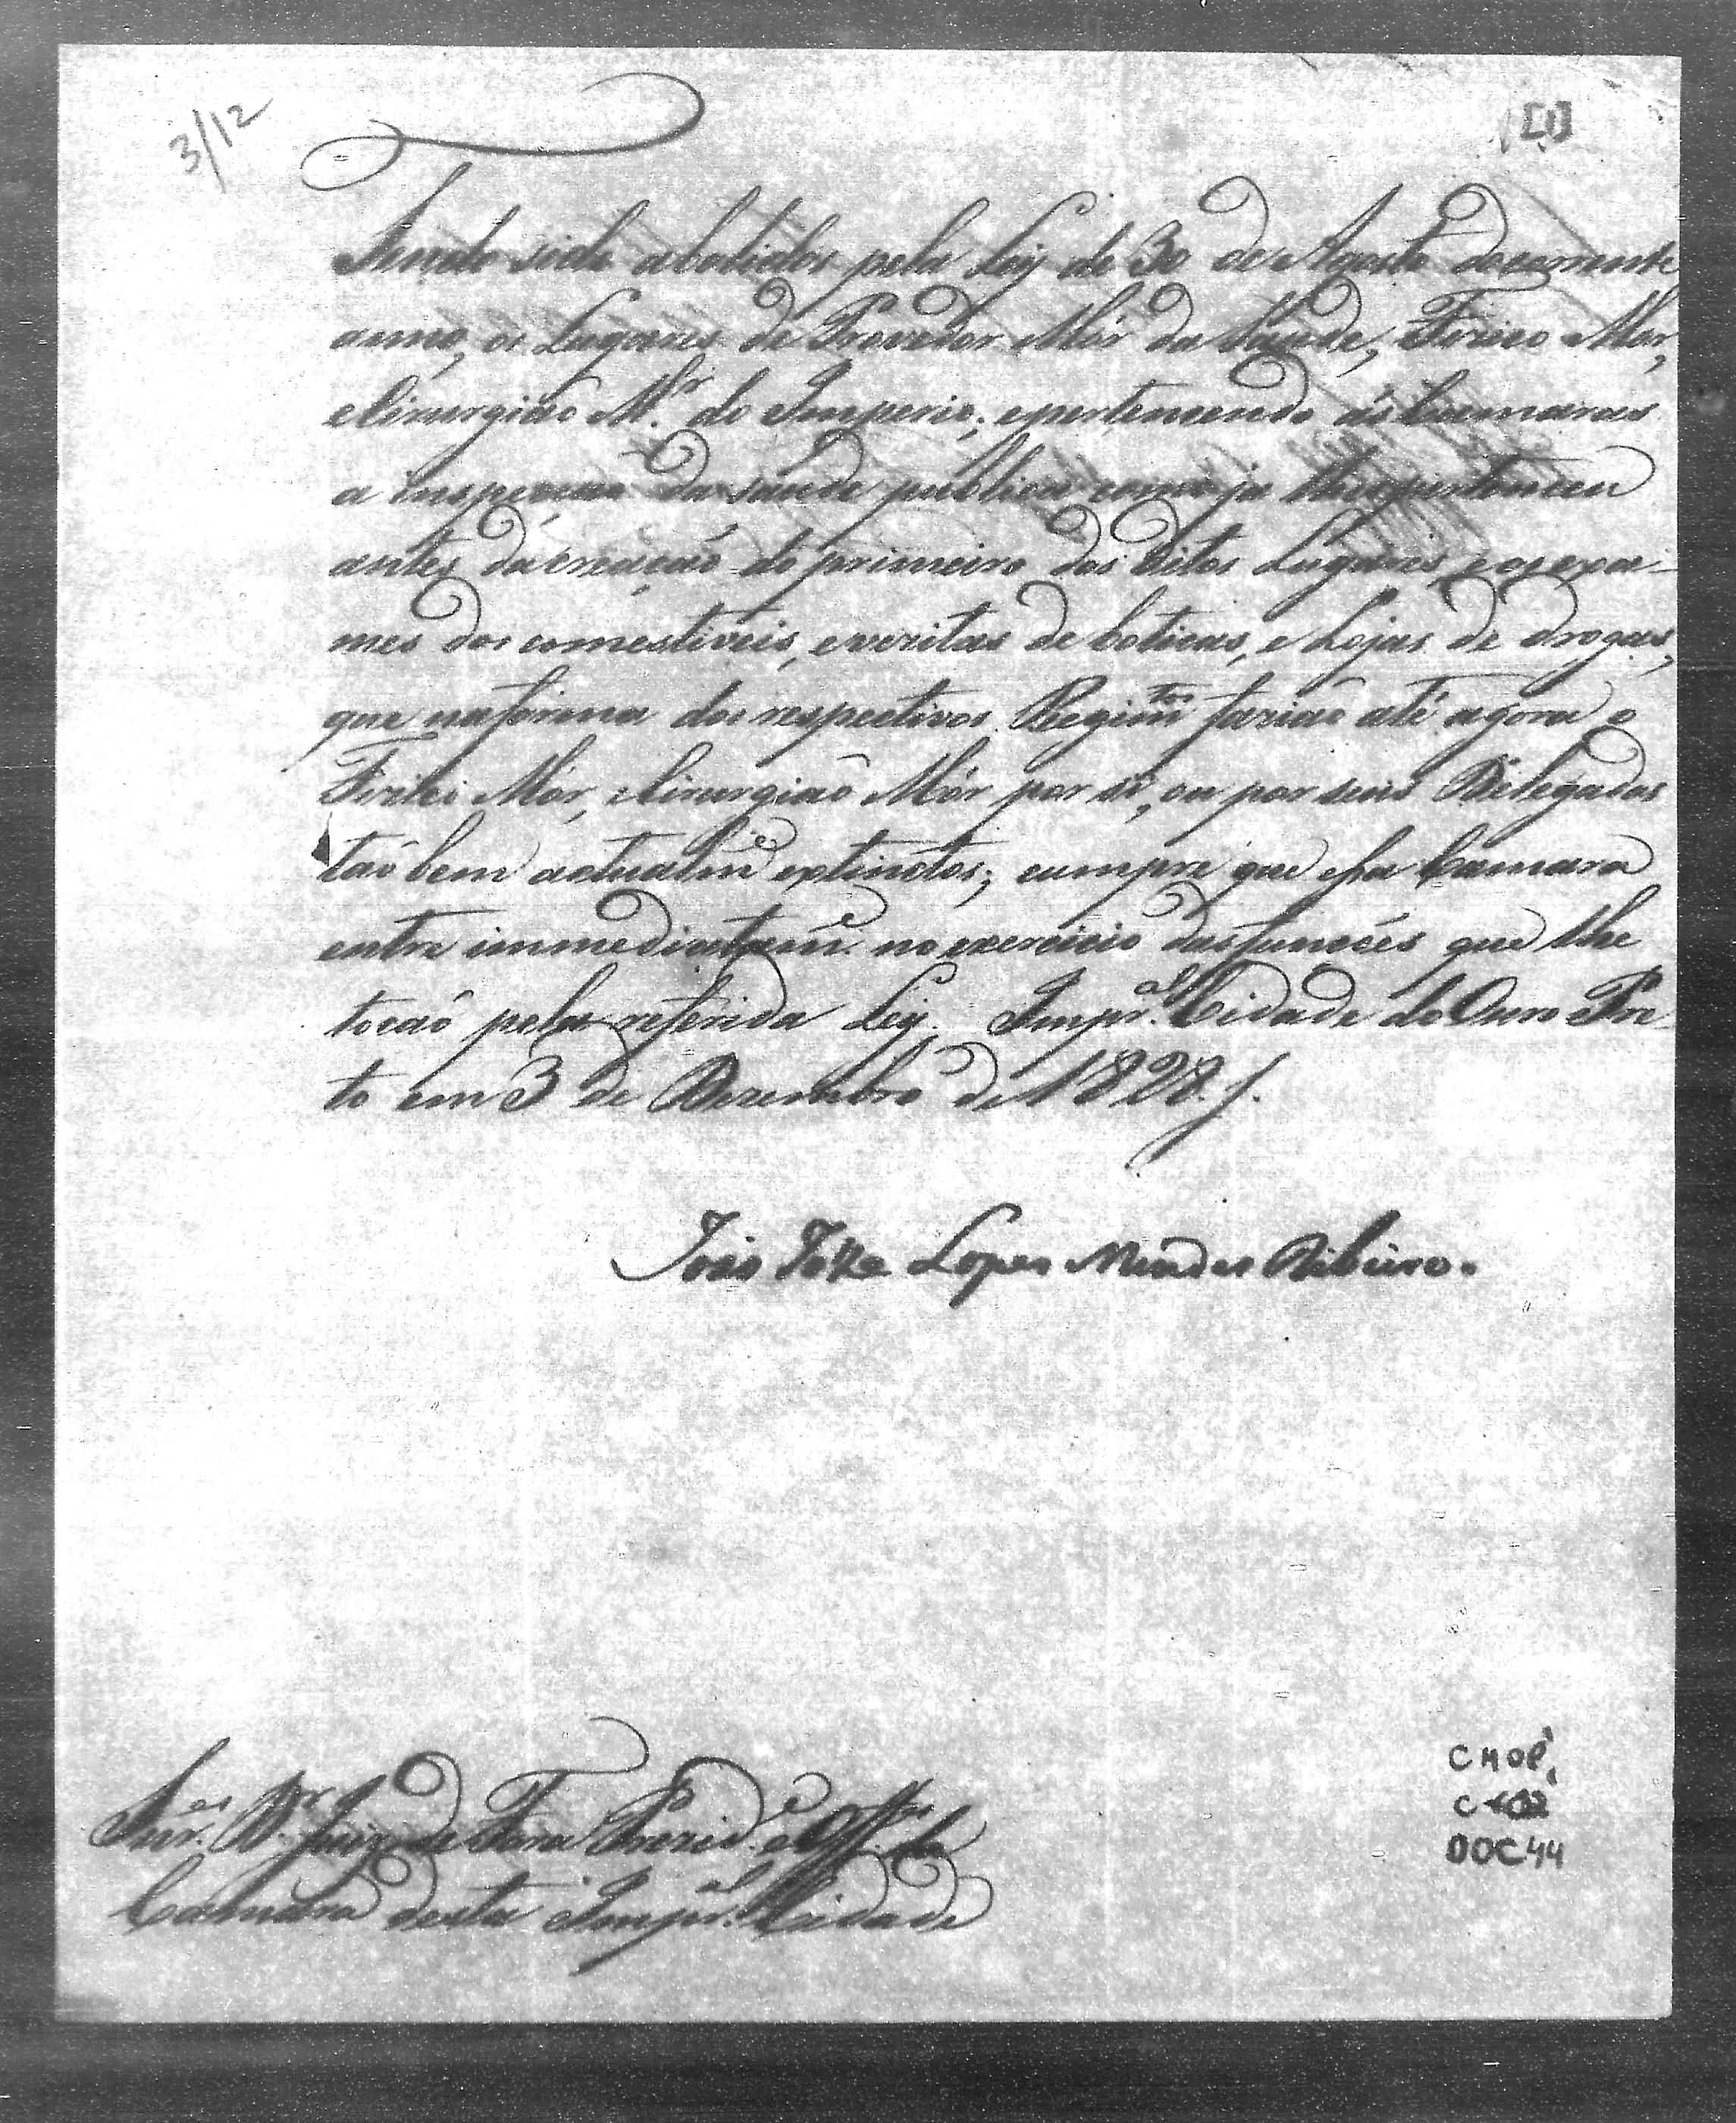 3/12
[1]
Tendo sido abolidos pela Ley de 30 de Agosto do corrente
anno, os Lugares de Provedor Mór da Saude, Fizico Mór,
e Cirurgiaõ M.ór do Imperio; e pertencendo ás Cammaras
a inspecçaõ da saude publica como ja lhes pertenceu
antes da creaçaõ do primeiro dos ditos Lugares, e os exa-
mes dos comestiveis, e vezitas de boticas, e Lojas de drogas,
que na fórma dos respectivos Regim.tos faziaõ até agora o
Fizico Mór, e Cirurgiaõ Mór por si, ou por seus Delegados
taõ bem actualm.e extinctos; cumpre que essa Camara
entre immediatam.e no exercicio das funcões que lhe
tocaõ pela referida Ley. Imp.al Cidade do Ouro Pre-
to em 3 de Dezembro de 1828.
João Joze Lopes Mendes Ribeiro.
Snr.es D.r Juiz de Fora Prezid.e e Off.es da
Camara desta Imp.al Cidade
CMOP
DOC 44